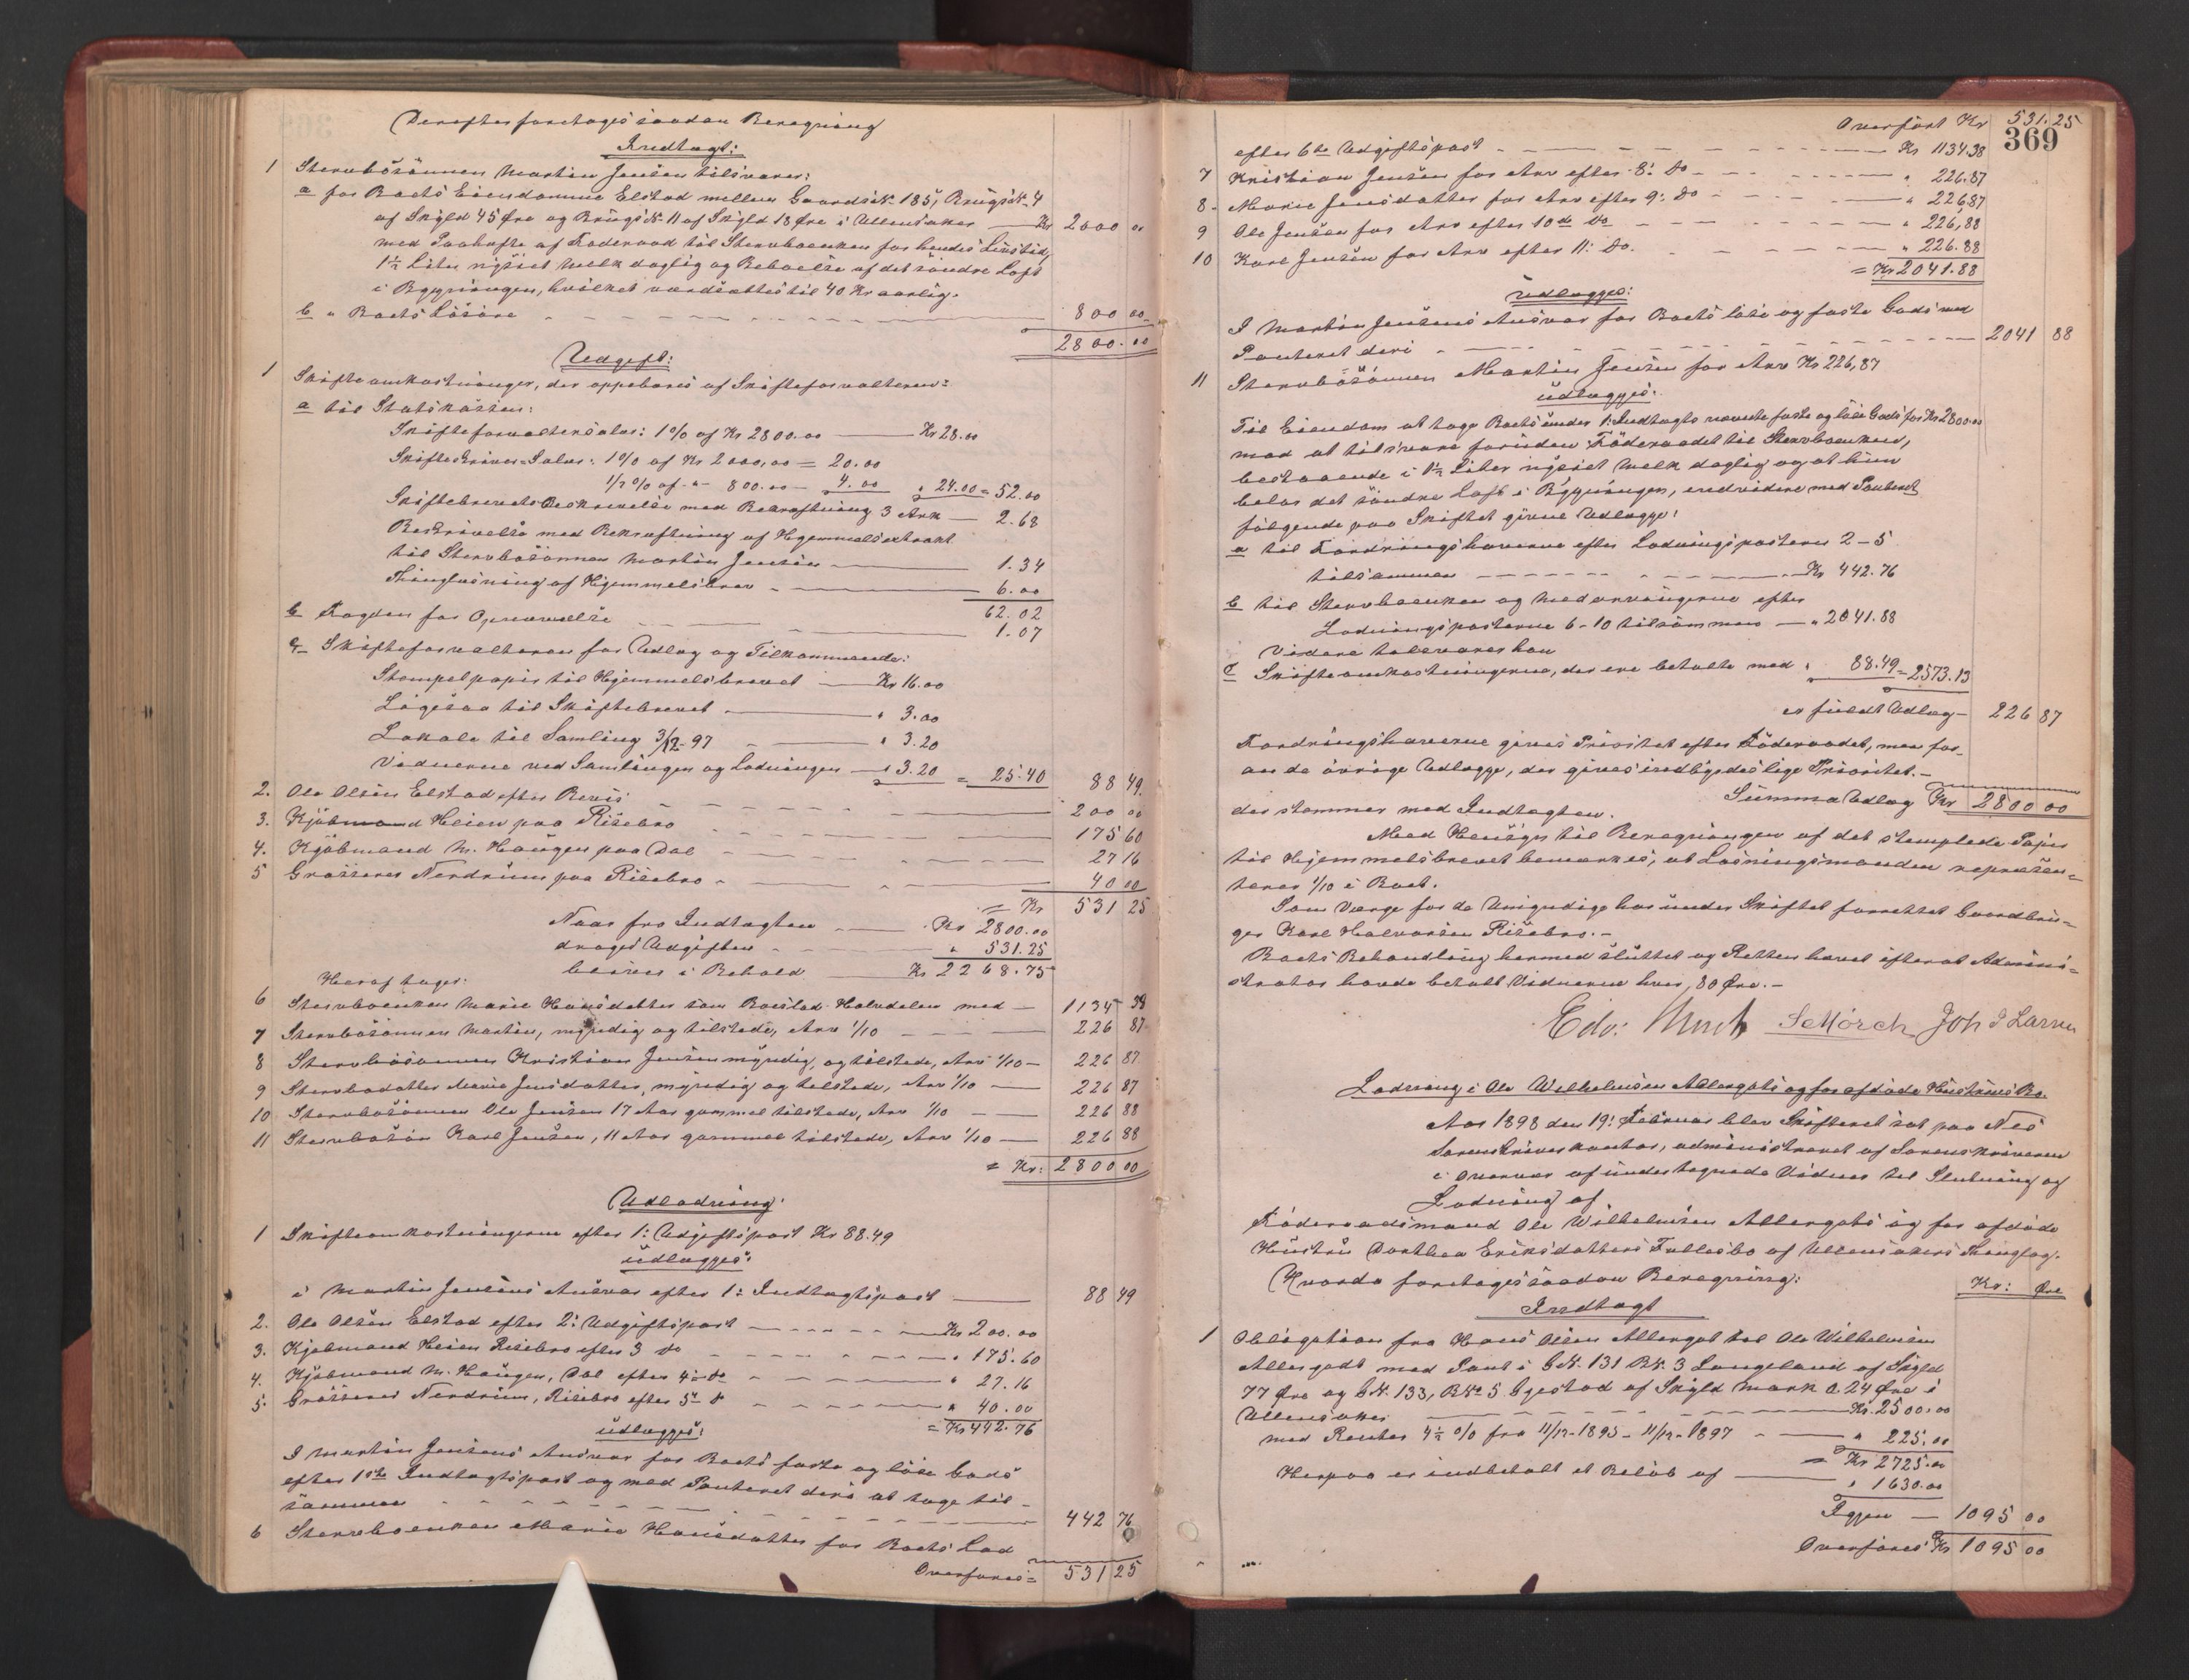 Derefter foretoges saadan Beregning
Indtægt:
1 Stervbosønnen Martin Jensen tilsvarer:
a for Boets Eiendomme Elstad mellem Gaards№ 185, Brugs№ 4
af Skyld 45 Øre og Brugs№ 11 af Skyld 18 Øre i Ullensaker — Kr 2000 00
med Paahefte af Föderaad til Stervboenken for hendes Livstid,
1½ Liter nysiet Melk daglig og Beboelse af det söndre Loft
i Bygningen, hvilket værdsættes til 40 Kr aarlig.
b " Boets Lösöre — 800 00
2800.00
Udgift:
1 Skifteomkostninger, der oppebæres af Skifteforvalteren:
a til Statskassen:
Skifteforvaltersalær: 1% af Kr 2800.00 — Kr 28.00
Skifteskriver-Salær: 1% af Kr 2000,00 = 20.00
1/2% af -"- 800.00 — 4.00 " 24.00 = 52.00
Skiftebrevets Beskrivelse med Bekræftning 3 Ark — 2.68
Beskrivelse med Bekræftning af Hjemmelsextrakt
til Stervbosönnen Martin Jensen — 1.34
Thinglæsning af Hjemmelsbrev — 6.00
62.02
b Fogden for Opnævnelse — 1.07
c Skifteforvalteren for Udlæg og Tilkommende:
Stempelpapir til Hjemmelsbrevet — Kr 16.00
Ligesaa til Skiftebrevet — " 3.00
Lokale til Samling 3/12-97 — " 3.20
Vidnerne ved Samlingen og Lodningen — " 3.20 = 25.40 88 49.
2. Ole Olsen Elstad efter Bevis — 200 00
3. Kjöbmand Heien paa Risebro — 175 60
4. Kjöbmand M. Haugen paa Dal — 27 16
5 Grosserer Nordrum paa Risebro — 40 00
= Kr 531 25
Naar fra Indtægten — Kr 2800.00
drages Udgiften — " 531.25
bliver i Behold — Kr 2268.75
Heraf tager:
6 Stervboenken Marie Hansdatter som Boeslod Halvdelen med — 1134 38
7 Stervbosönnen Martin, myndig og tilstede, Arv 1/10 — 226 87
8 Stervbosönnen Kristian Jensen myndig, og tilstede, Arv 1/10 — 226 87
9 Stervbodatter Marie Jensdatter, myndig og tilstede, Arv 1/10 — 226 87
10. Stervbosönnen Ole Jensen 17 Aar gammel tilstede, Arv 1/10 — 226 88
11 Stervbosön Karl Jensen, 11 Aar gammel tilstede, Arv 1/10 — 226 88
= Kr: 2800 00
Udlodning
1 Skifteomkostningerne efter 1: Udgiftspost Kr 88.49
udlægges:
i Martin Jensens Ansvar efter 1: Indtægtspost — 88 49
2. Ole Olsen Elstad efter 2: Udgiftspost — Kr 200.00
3. Kjöbmand Heien Risebro efter 3 do — " 175.60
4. Kjöbmand M. Haugen, Dal efter 4de do — " 27.16
5. Grosserer Nordrum, Risebro efter 5te do — " 40.00
= Kr 442.76
udlægges:
I Martin Jensens Ansvar for Boets faste og löse Gods
efter 1ste Indtægtspost og med Panteret deri at tage til-
sammen — 442 76
6 Stervboenken Marie Hansdatter for Boets Lod
Overføres = 531 25
369
Overfört Kr 531.25
efter 6te Udgiftspost — Kr 1134.38
7 Kristian Jensen for Arv efter 8: do — " 226.87
8 - Marie Jensdatter for Arv efter 9: do — " 226,87
9 Ole Jensen for Arv efter 10de do — " 226,88
10 Karl Jensen for Arv efter 11: do. — " 226.88
= Kr 2041.88
Udlægges:
I Martin Jensens Ansvar for Boets löse og faste Gods med
Panteret deri — 2041 88
11 Stervbosönnen Martin Jensen for Arv Kr 226,87
udlægges:
Til Eiendom at tage Boets under 1: Indtægt nævnte faste og löse Gods for Kr 2800.00
mod at tilsvare foruden Föderaadet til Stervboenken,
bestaaende i 1½ Liter nysiet Melk daglig og at hun
bebor det söndre Loft i Bygningen, endvidere med Panteret
fölgende paa Skiftet givne Udlægge:
a til Fordringshaverne efter Lodningsposterne 2-5
tilsammen — Kr 442.76
b til Stervboenken og Medarvingerne efter
Lodningsposterne 6-10 tilsammen — " 2041.88
Videre tilsvarer han
c Skifteomkostningerne, der ere betalte med " 88.49 = 2573.13
er fuldt Udlæg — 226 87
Fordringshaverne gives Prioritet efter Föderaadet, men for-
an de övrige Udlægge, der gives indbyrdes lige Prioritet. —
Summa Udlæg Kr 2800 00
der stemmer med Indtægten.
Med Hensyn til Beregningen af det stemplede Papir
til Hjemmelsbrevet bemærkes, at Løsningsmanden repræsen-
terer 1/10 i Boet.
Som Værge for de Umyndige har under Skiftet forrettet Gaardbru-
ger Karl Halvorsen Risebro. —
Boets Behandling hermed sluttet og Retten hævet efterat Admini-
strator havde betalt Vidnerne hver, 80 Øre. —
Edv: Munch S Mörch Joh J Larsen
Lodning i Ole Wilhelmsen Allergots og for afdöde Hustrues Bo.
Aar 1898 den 19: Februar blev Skifteret sat paa Nes
Sorenskriverkontor, administreret af Sorenskriveren
i Overvær af undertegnede Vidner til Slutning og
Lodning af
Föderaadsmand Ole Wilhelmsen Allergots og for afdöde
Hustru Dorthea Eriksdatters Fællesbo af Ullensakers Thinglag.
Hvorda foretoges saadan Beregning:
Kr: Øre
Indtægt
1 Obligation fra Hans Olsen Allergot til Ole Wilhelmsen
Allergodt med Pant i G№ 131 B№ 3 Langeland af Skyld
77 Øre og G№ 133, B№ 5 Gjestad af Skyld Mark 0.24 Øre i
Ullensaker — Kr. 2500.00
med Renter 4½ % fra 11/12-1895 - 11/12-1897 — " 225.00
= Kr 2725.00
Herpaa er indbetalt et Belöb af — " 1630.00
Igjen — 1095 00
Overföres Kr 1095 00